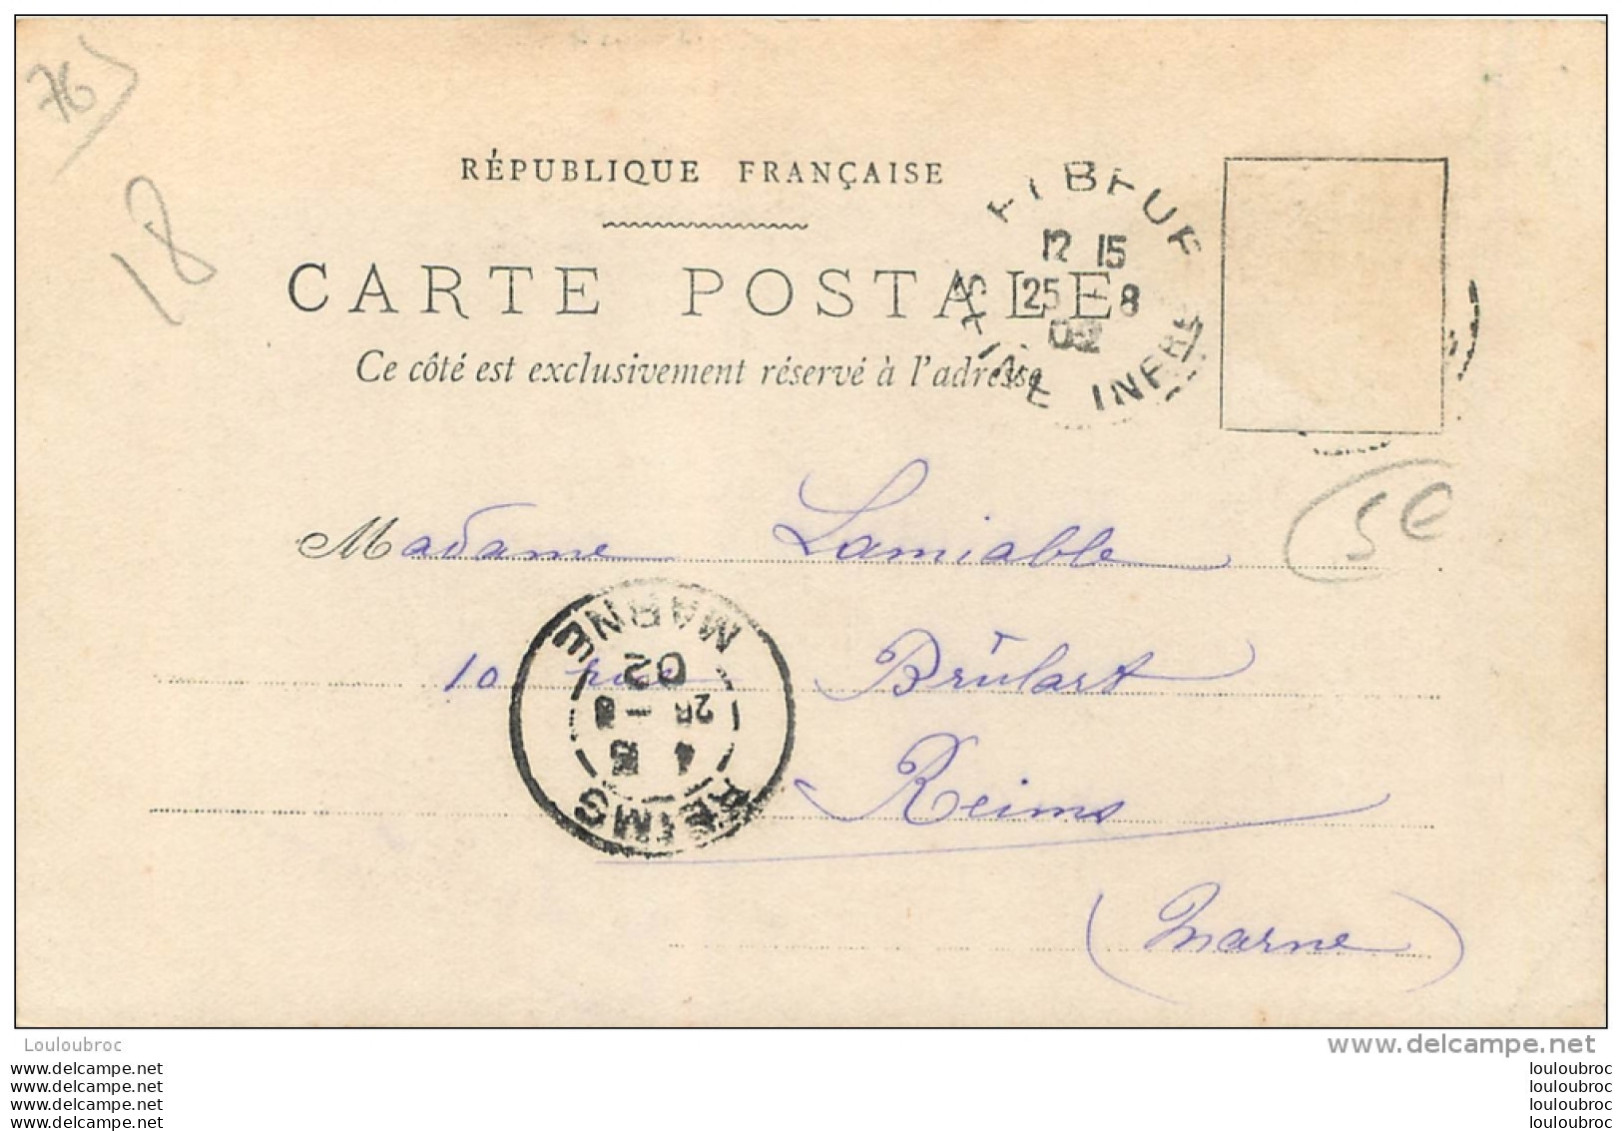 76
18
RÉPUBLIQUE FRANÇAISE
CARTE POSTALE
Ce côté est exclusivement réservé à l'adresse
12 15
25 - 8
02
SEINE INFRE
5€
Madame Lamiable
10 rue Brûlart
Reims
(Marne)
MARNE
02
REIMS
Louloubroc
www.delcampe.net
www.delcampe.net
louloubroc
www.delcampe.net
louloubroc
www.delcampe.net
louloubroc
www.delcampe.net
louloubroc